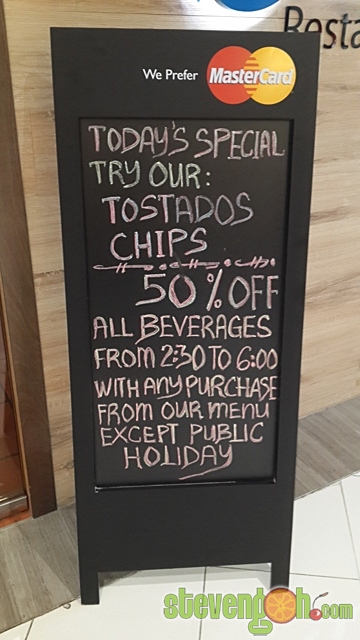 Resta
We Prefer MasterCard
TODAY'S SPECIAL
TRY OUR:
TOSTADOS
CHIPS
50% OFF
ALL BEVERAGES
FROM 2:30 TO 6:00
WITH ANY PURCHASE
FROM OUR MENU
EXCEPT PUBLIC
HOLIDAY
stevengoh.com